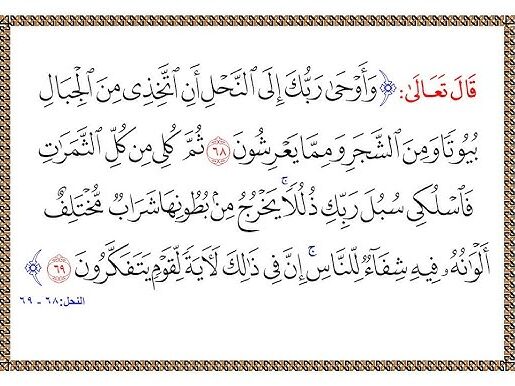 قَالَ تَعَالَىٰ: ﴿وَأَوْحَىٰ رَبُّكَ إِلَى ٱلنَّحْلِ أَنِ ٱتَّخِذِى مِنَ ٱلْجِبَالِ
بُيُوتًا وَمِنَ ٱلشَّجَرِ وَمِمَّا يَعْرِشُونَ ٦٨ ثُمَّ كُلِى مِن كُلِّ ٱلثَّمَرَٰتِ
فَٱسْلُكِى سُبُلَ رَبِّكِ ذُلُلًا ۚ يَخْرُجُ مِنۢ بُطُونِهَا شَرَابٌ مُّخْتَلِفٌ
أَلْوَٰنُهُۥ فِيهِ شِفَآءٌ لِّلنَّاسِ ۗ إِنَّ فِى ذَٰلِكَ لَءَايَةً لِّقَوْمٍ يَتَفَكَّرُونَ ٦٩﴾
النحل: ٦٨ - ٦٩